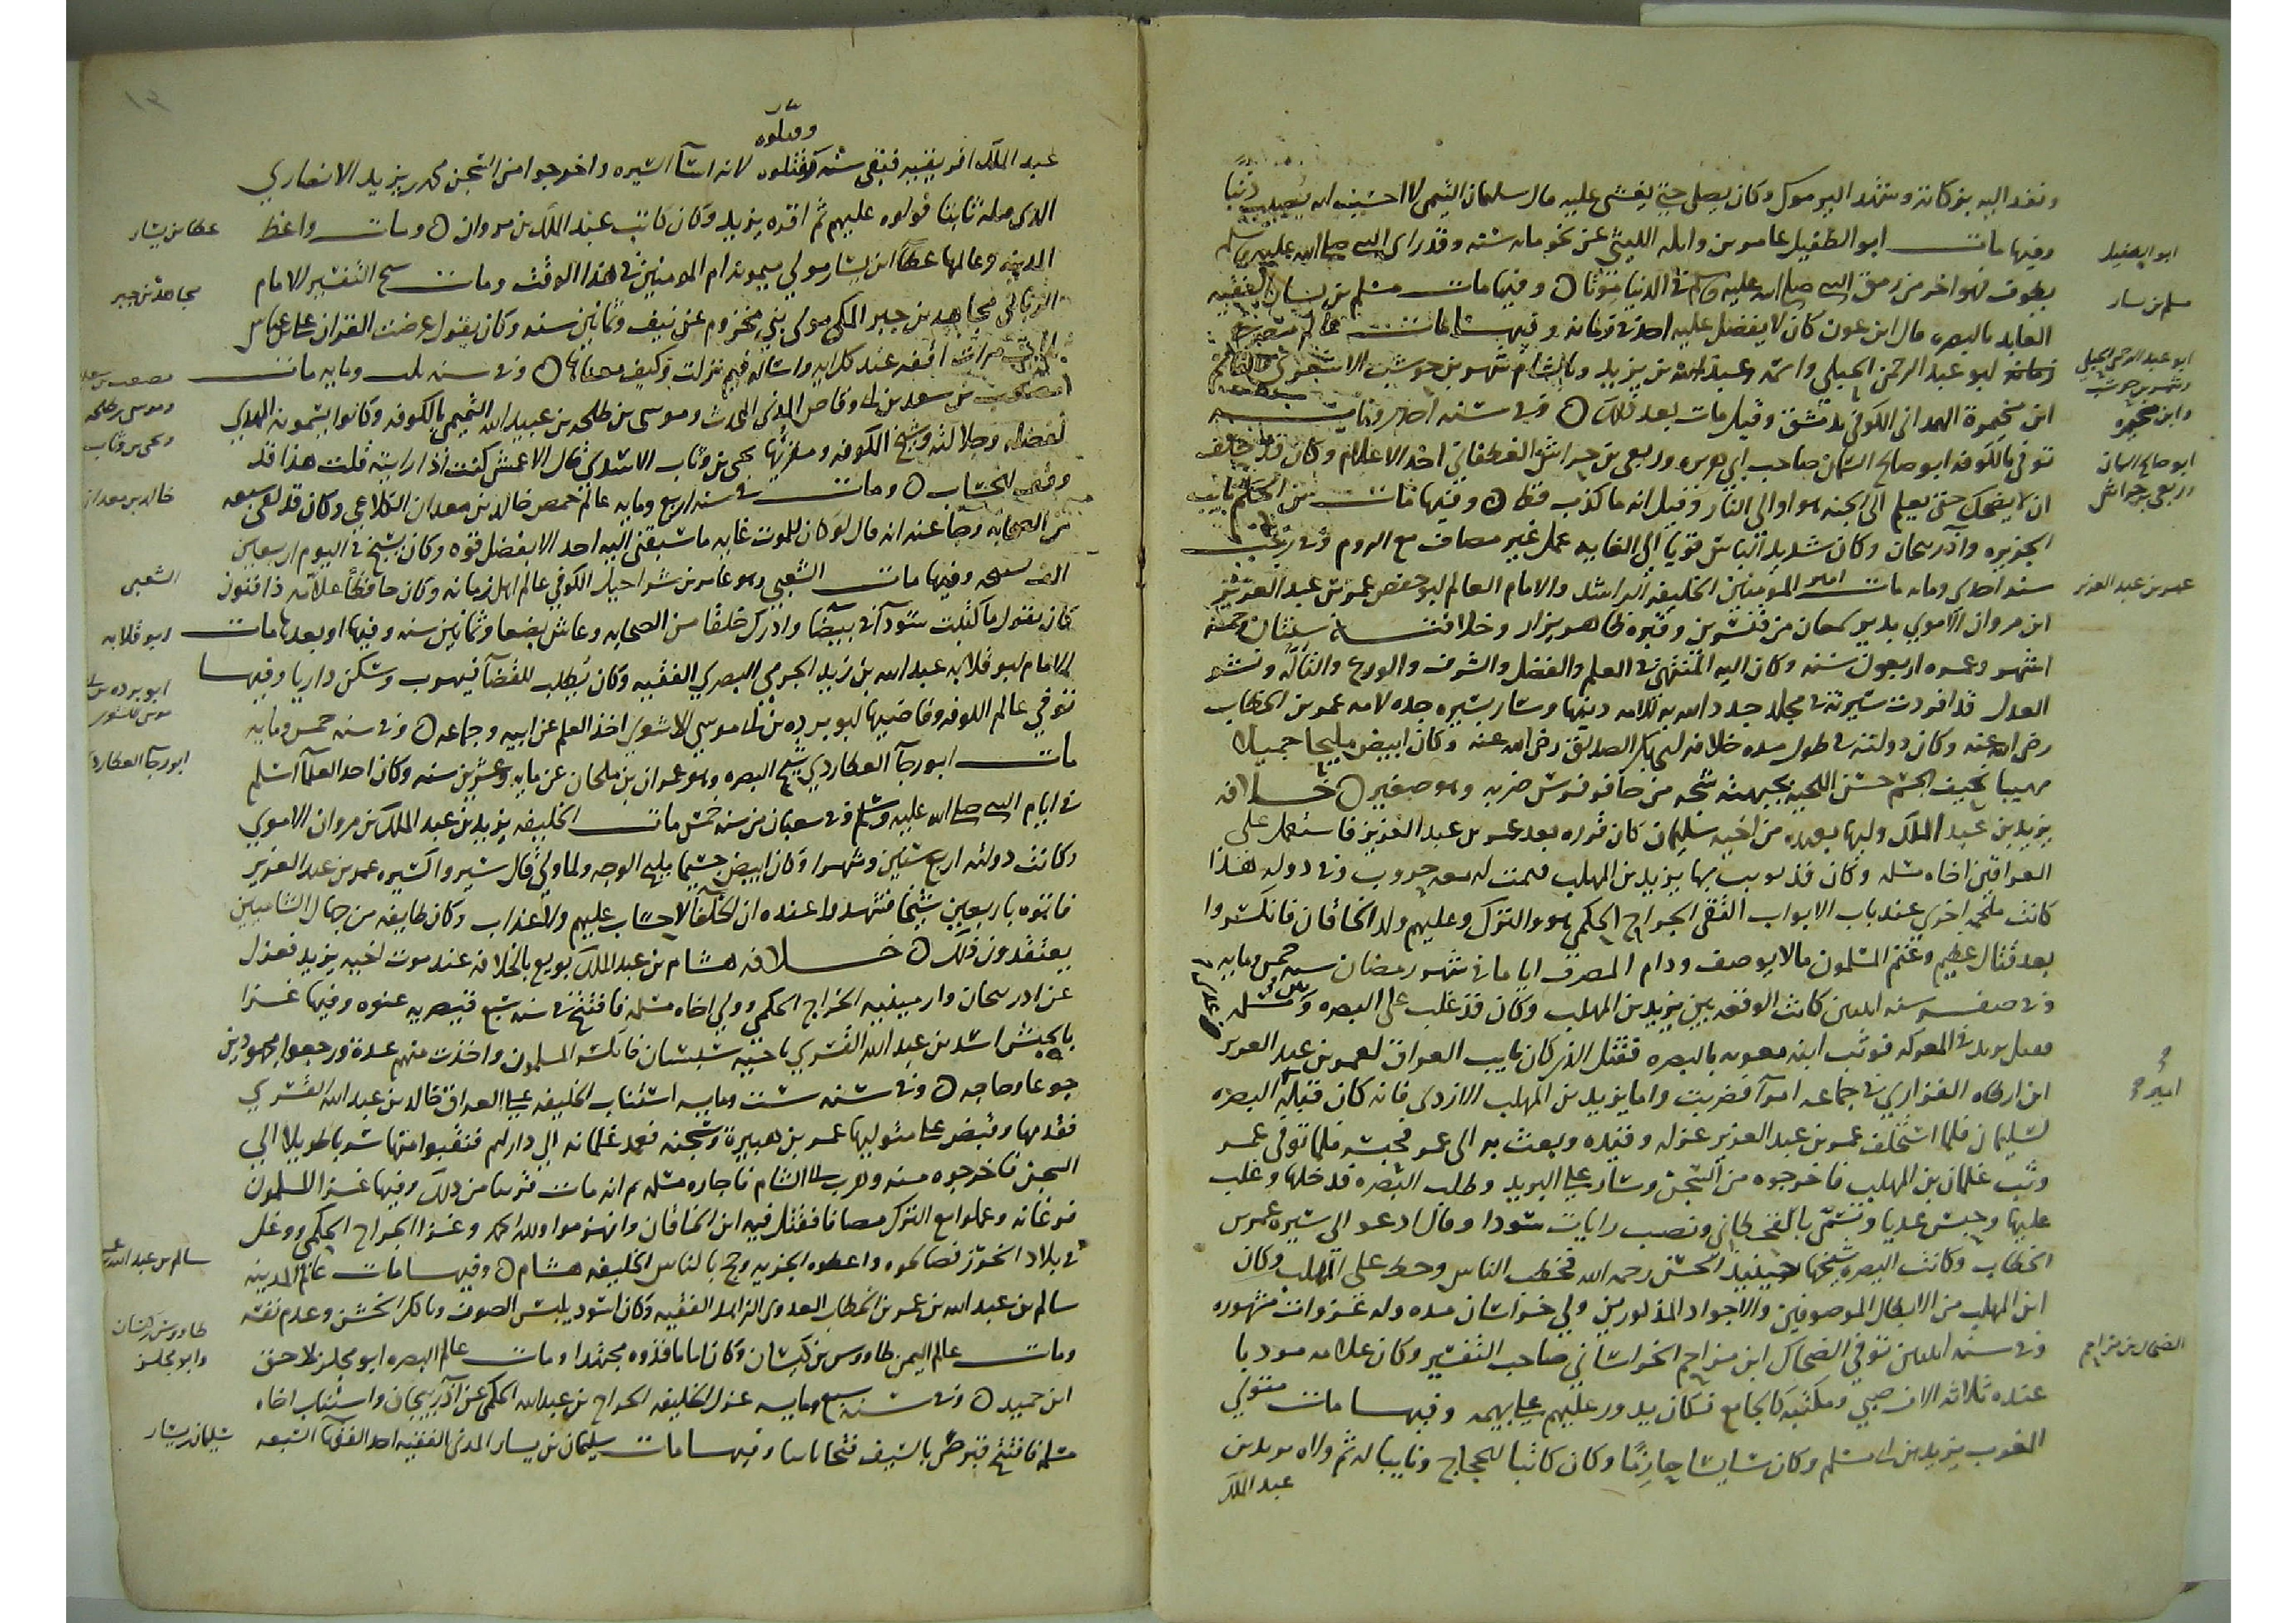 ونفذ اليه بزكاته وشهد اليرموك وكان يصلي حتى يغشى عليه قال سليمان التيمي لا احسبه انه يصيب ذنبا
وفيها مات ابو الطفيل عامر بن واثلة الليثي عن نحو مائة سنة وقد راى النبي صلى الله عليه وسلم
ابو الطفيل
يطوف فهو اخر من رمق النبي صلى الله عليه وسلم في الدنيا موتا وفيها مات مسلم بن يسار الفقيه
مسلم بن يسار
العابد بالبصرة قال ابن عون كان لا يفضل عليه احد في زمانه وفيها مات عالم مصر
ابو عبد الرحمن الحبلي واسمه عبد الله بن يزيد وبالشام شهر بن حوشب الاشعري
ابو عبد الرحمن الحبلي
وشهر بن حوشب
ابن مخيمرة الهمداني الكوفي بدمشق وقيل مات بعد ذلك وفي سنة احدى ومايه
وابن مخيمره
توفي بالكوفه ابو صالح السمان صاحب ابي هريره وربعي بن حراش الغطفاني احد الاعلام وكان قد حلف
ابو صالح السمان
وربعي بن حراش
ان لا يضحك حتى يعلم الى الجنة هو او الى النار وقيل انه ما كذب قط وفيها مات بن الحكم نايب
الجزيره واذربيجان وكان شديد الباس قويا الى الغايه عمل غير مصاف مع الروم وفي رجب
سنة احدى ومايه مات امير المومنين الخليفه الراشد والامام العالم ابو حفص عمر بن عبد العزيز
عمر بن عبد العزيز
ابن مروان الاموي بدير سمعان من قنسرين وقبره ظاهر يزار وخلافته سنتان وخمسة
اشهر وعمره اربعون سنه وكان اليه المنتهى في العلم والفضل والشرف والورع والتاله ونشر
العدل قد افردت سيرته في مجلد جدد الله به للامه دينها وسار بسيره جده لامه عمر بن الخطاب
رضي الله عنه وكان دولته في طول مده خلافة ابي بكر الصديق رضي الله عنه وكان ابيض مليحا جميلا
مهيبا نحيف الجسم حسن اللحيه بجبهته شجه من حافر فرس ضربه وهو صغير خلافه
يزيد بن عبد الملك وليها بعهد من اخيه سليمان كان قرره بعد عمر بن عبد العزيز فاستعمل على
العراقين اخاه مسلمه وكان قد بويع بها يزيد بن المهلب فتمت له معه حروب وفي دوله هذا
كانت ملحمه اخرى عند باب الابواب التقى الجراح الحكمي هو والترك وعليهم ولد الخاقان فانكسروا
بعد قتال عظيم وغنم المسلمون مالا يوصف ودام المصاف اياما في شهر رمضان سنه خمس ومايه
وفي صفر سنه اثنتين كانت الوقعه بين يزيد بن المهلب وكان قد غلب على البصره وبين مسلمه
فقتل يزيد في المعركه فوثب ابنه معويه بالبصره فقتل الذي كان نايب العراق لعمر بن عبد العزيز
ابن ارطاه الفزاري في جماعه امرا فضربت واما يزيد بن المهلب الازدي فانه كان قبله البصره
امير
لسليمان فلما استخلف عمر بن عبد العزيز عزله وقيده وبعث به الى عمر فحبسه فلما توفي عمر
وثب غلمان بن المهلب فاخرجوه من السجن وسار على البريد وطلب البصره فدخلها وغلب
عليها وحبس عديا وتسمى بالقحطاني ونصب رايات سودا وقال ادعو الى سيره عمر بن
الخطاب وكانت البصره شيخها حينيذ الحسن رحمه الله فخطب الناس وحط على المهلب وكان
ابن المهلب من الابطال الموصوفين والاجواد المذكورين ولي خراسان مده وله غزوات مشهوره
وفي سنه اثنتين توفي الضحاك ابن مزاحم الخراساني صاحب التفسير وكان علامه مودبا
الضحاك بن مزاحم
عنده ثلاثه الاف صبي ومكتبه كالجامع فكان يدور عليهم على بهيمه وفيها مات متولي
المغرب يزيد بن ابي مسلم وكان سايسا حازما وكان كاتبا للحجاج ونايبا له ثم ولاه يزيد بن
عبد الملك
وقتلوه
عبد الملك افريقيه فبقي سنه لانه اسا السيره واخرجوا من السجن محمد بن يزيد الانصاري
الذي قبله نايبا فولوه عليهم ثم اقره يزيد وكان كاتب عبد الملك بن مروان ومات واعظ
عطا بن يسار
المدينه وعالمها عطا ابن يسار مولى ميمونه ام المومنين في هذا الوقت ومات شيخ التفسير الامام
مجاهد بن جبر
الرباني مجاهد بن جبر المكي مولى بني مخزوم عن نيف وثمانين سنه وكان يقول عرضت القران على ابن عباس
مرات اقفه عند كل ايه واساله فيم نزلت وكيف معناها وفي سنه ثلث ومايه مات
مصعب بن سعد بن ابي وقاص المدني المحدث وموسى بن طلحه بن عبيد الله التيمي بالكوفه وكانوا يسمونه المهدي
مصعب بن سعد
وموسى بن طلحه
لفضله وجلالته وشيخ الكوفه ومقريها يحيى بن وثاب الاسدي قال الاعمش كنت اذا رايته قلت هذا قد
ويحيى بن وثاب
وقف للحساب ومات في سنه اربع ومايه عالم حمص خالد بن معدان الكلاعي وكان قد لقي سبعين
خالد بن معدان
من الصحابه وجا عنه انه قال لو كان للموت غايه ما سبقني اليه احد الا بفضل قوه وكان يسبح في اليوم اربعين
الف تسبيحه وفيها مات الشعبي وهو عامر بن شراحيل الكوفي عالم اهل زمانه وكان حافظا علامه ذا فنون
الشعبي
كان يقول ما كتبت سودا في بيضا وادرك خلقا من الصحابه وعاش بضعا وثمانين سنه وفيها او بعدها مات
وابو قلابه
الامام ابو قلابه عبد الله بن زيد الجرمي البصري الفقيه وكان يطلب للقضا فيهرب وسكن داريا وفيها
توفي عالم الكوفه وقاضيها ابو برده بن ابي موسى الاشعري اخذ العلم عن ابيه وجماعه وفي سنه خمس ومايه
ابو برده بن ابي
موسى الاشعري
مات ابو رجا العطاردي شيخ البصره وهو عمران بن ملحان عن مايه وعشرين سنه وكان احد العلما اسلم
ابو رجا العطاردي
في ايام النبي صلى الله عليه وسلم وفي شعبان من سنه خمس مات الخليفه يزيد بن عبد الملك بن مروان الاموي
وكانت دولته اربع سنين وشهرا وكان ابيض جسيما مليح الوجه ولما ولي قال سيروا كسيره عمر بن عبد العزيز
فاتوه باربعين شيخا فشهدوا عنده ان الخلفا لا حساب عليهم ولا عذاب وكان طايفه من جهال الشاميين
يعتقدون ذلك خلافه هشام بن عبد الملك بويع بالخلافه عند موت اخيه يزيد فعزل
عن اذربيجان وارمينيه الجراح الحكمي وولى اخاه مسلمه فافتتح في سنه سبع قيصريه عنوه وفيها غزا
بالجيش اسد بن عبد الله القسري فانكسر المسلمون واخذت منهم عدة ورجعوا مجهودين
جوعا وحاجه وفي سنه ست ومايه استناب الخليفه على العراق خالد بن عبد الله القسري
فقدمها وقبض على متوليها عمر بن هبيرة وسجنه فعمد غلمانه الى دار لهم فنقبوا منها سربا طويلا الى
السجن فاخرجوه منه وهرب الى الشام فاجاره مسلمه ثم انه مات قريبا من ذلك وفيها غزا المسلمون
فرغانه وعملوا مع الترك مصافا فقتل فيه ابن الخاقان وانهزموا ولله الحمد وغزا الجراح الحكمي ووغل
في بلاد الخزر فصالحوه واعطوه الجزيه وحج بالناس الخليفه هشام وفيها مات عالم المدينه
سالم بن عبد الله بن عمر
سالم بن عبد الله بن عمر بن الخطاب العدوي الزاهد الفقيه وكان اسود يلبس الصوف وياكل الخشن وعدم نفقته
ومات عالم اليمن طاووس بن كيسان وكان اماما قدوه مجتهدا ومات عالم البصره ابو مجلز لاحق
طاووس بن كيسان
وابو مجلز
ابن حميد وفي سنه سبع ومايه عزل الخليفه الجراح بن عبد الله الحكمي عن اذربيجان واستناب اخاه
مسلمه فافتتح بالسيف وفيها مات سليمان بن يسار المدني الفقيه احد الفقها السبعه
سليمان بن يسار